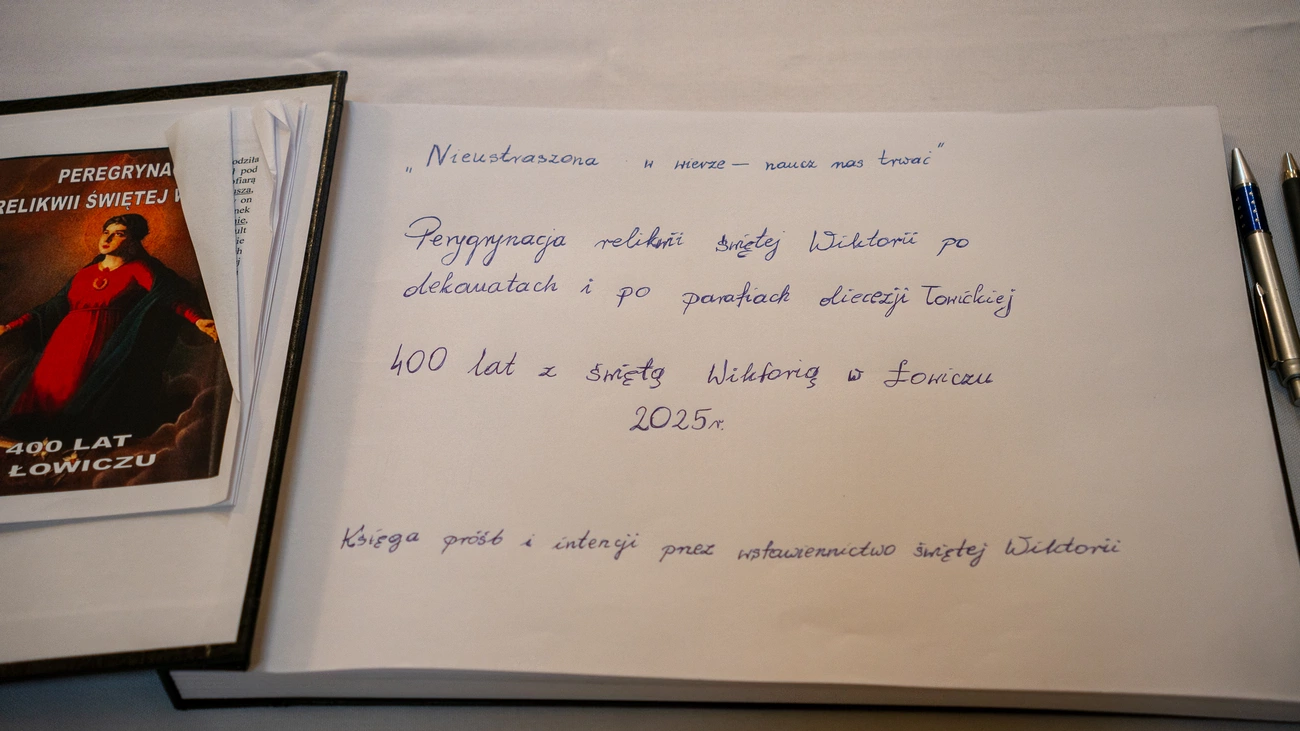 PEREGRYNAC
RELIKWII ŚWIĘTEJ W
400 LAT
ŁOWICZU
odziła
pod
fiarą
usza,
on
nek
nie,
ult
ie
h
„Nieustraszona w wierze — naucz nas trwać"
Perygrynacja relikwii świętej Wiktorii po
dekanatach i po parafiach diecezji Łowickiej
400 lat z świętą Wiktorią w Łowiczu
2025r.
Księga próśb i intencji przez wstawiennictwo świętej Wiktorii